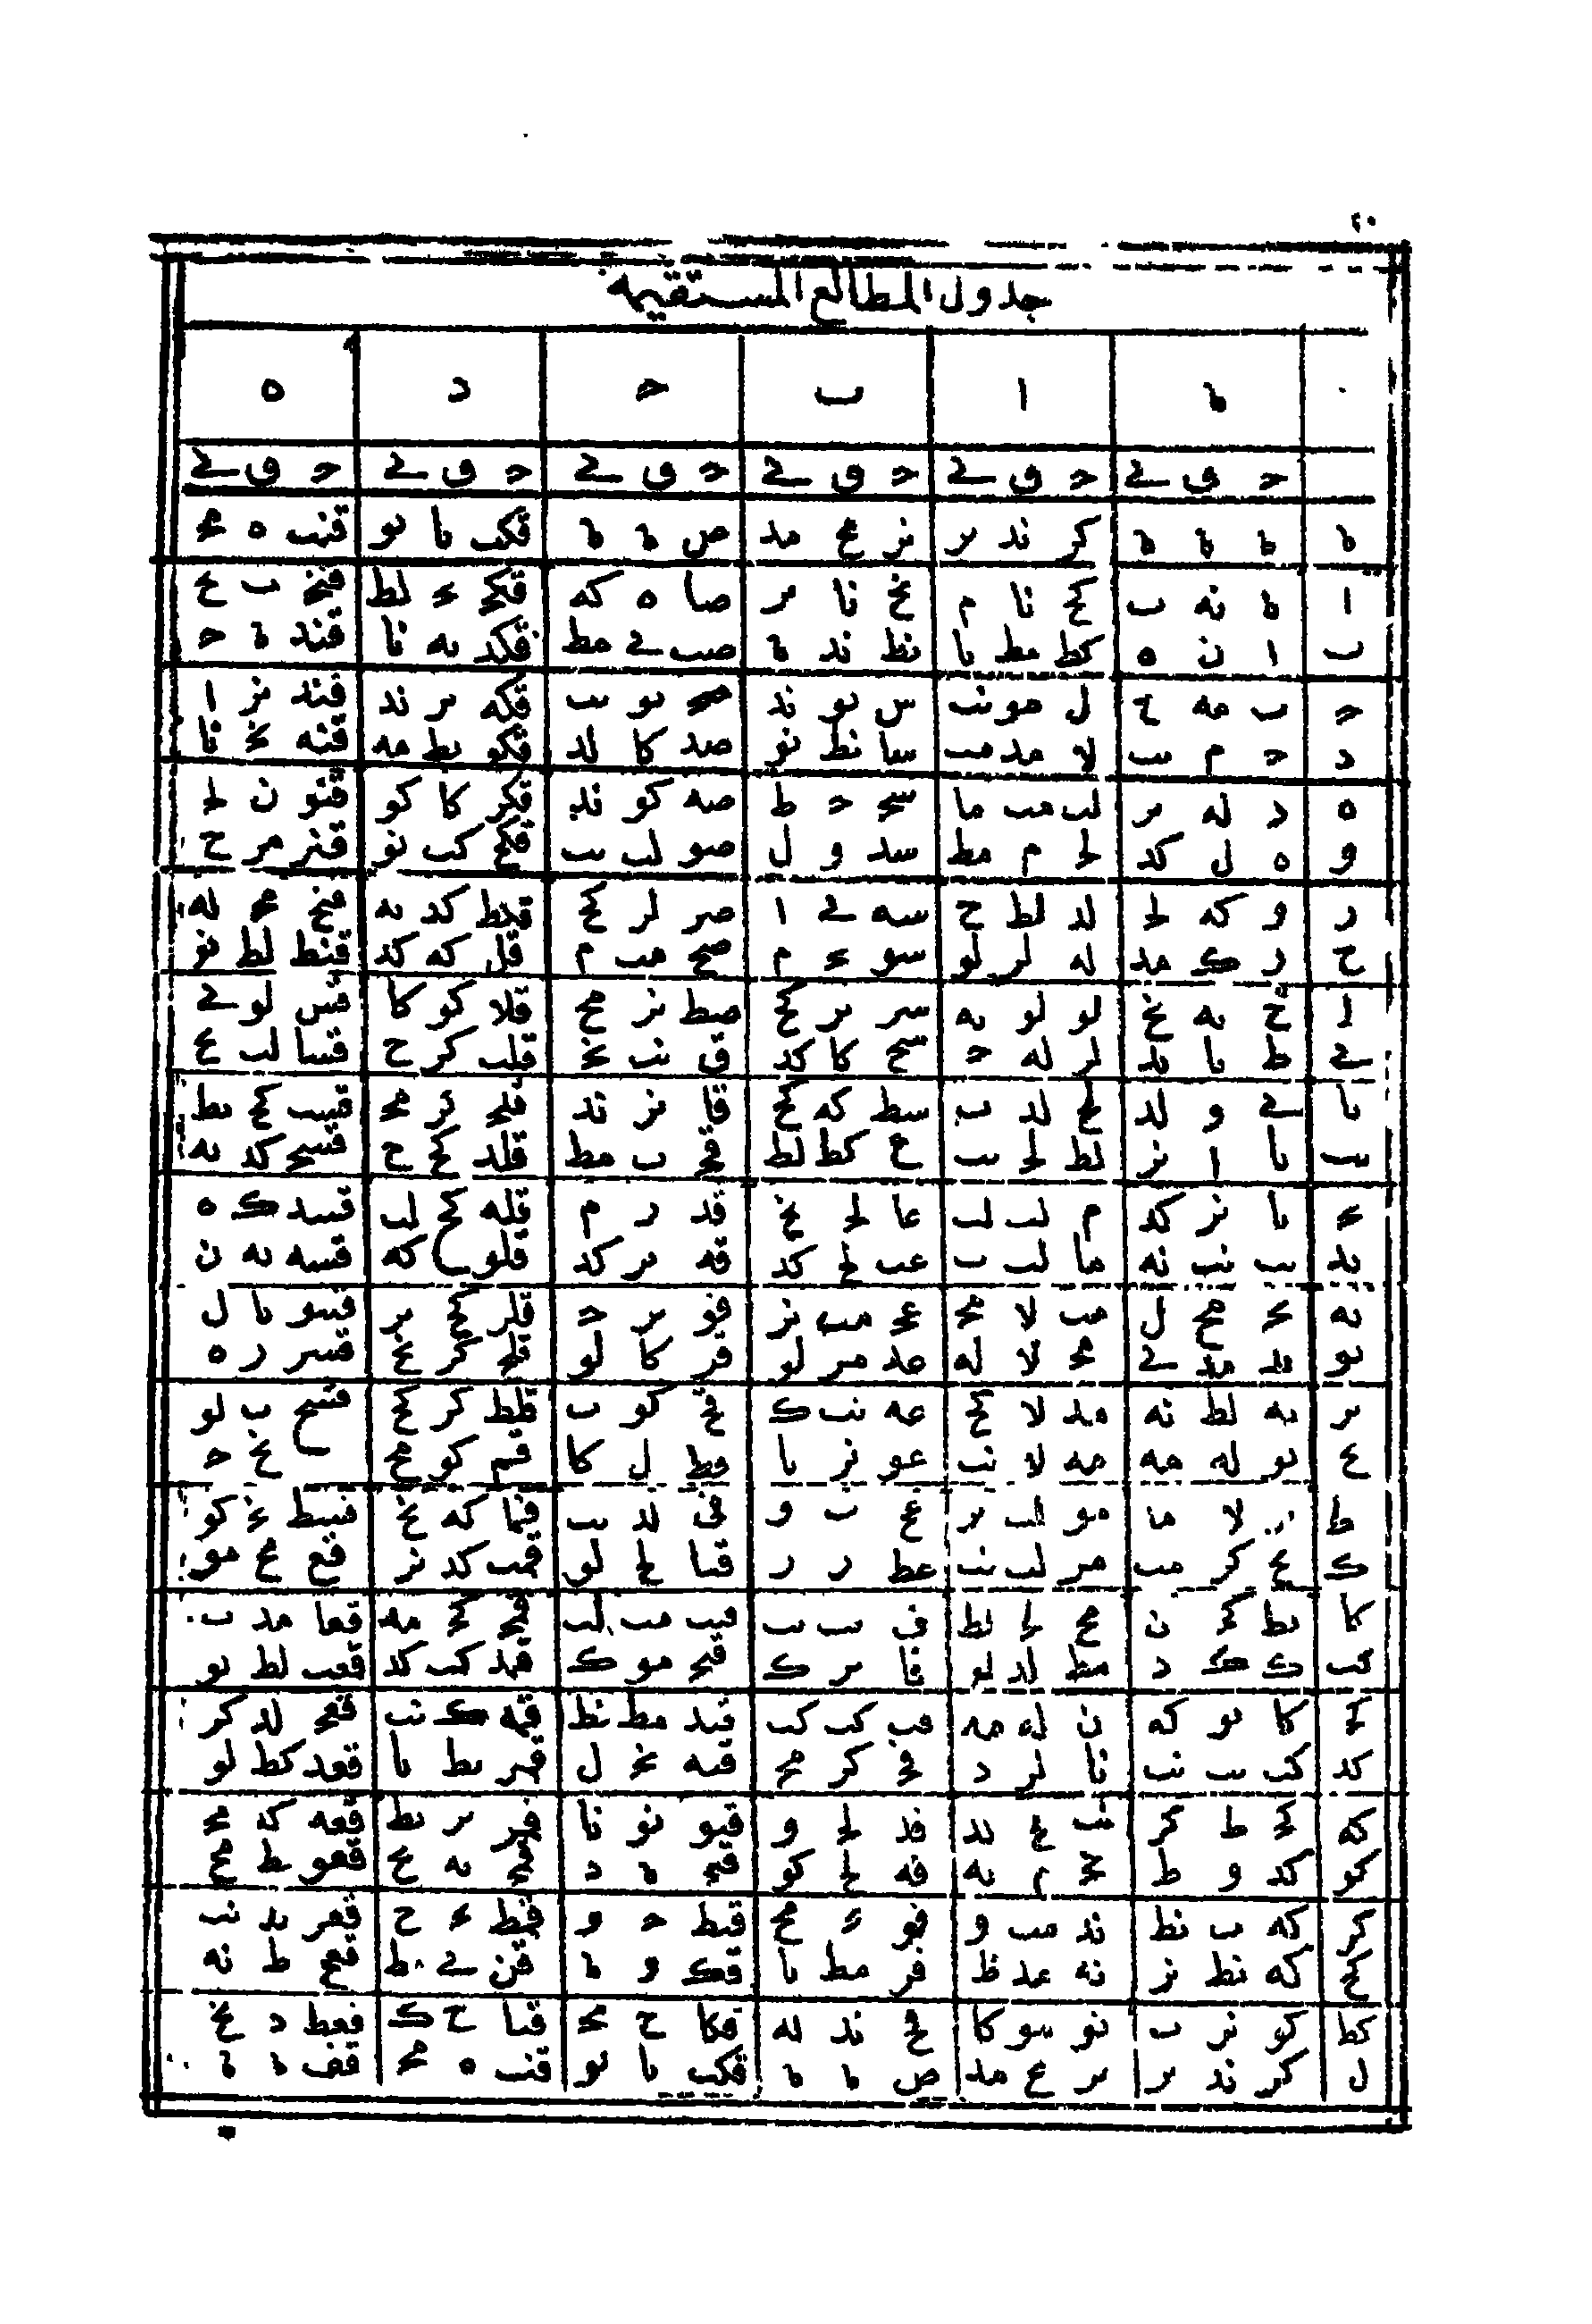 ٤٠
جدول المطالع المستقيمة
ه ا ب ح د ه
ح ق ي ح ق ي ح ق ي ح ق ي ح ق ي ح ق ي
ه ه ه ه كز ند يز نز مح مد ص ه ه قكب يا يو قنب ه مج
ا ه نه ب كح نا م نح نا مز صا ه كه قكج يج لط قنج ب يح
ب ا ن ه كط مط يا نط ند ه صب ي مط قكد يه نا قند ه ح
ح ب مه ح ل مو نب س نو ند صج يو يب قكه يز ند قند نز ا
د ح م يب لا مد مب سا نط نو صد كا لد قكو يط مه قنه نج نا
ه د له يز لب مب ما سج ح ط صه كو ند قكز كا كو قنو ن لج
و ه ل كد لج م مط سد و ل صو لب يب قكح كب نو قنز مز ح
ز و كه لج لد لط ح سه ي ا صز لز كح قكط كد يه قنح مج له
ح ز ك مد له لز لو سو يج م صح مب م قل كه كد قنط لط نو
ط ح يه نح لو لو يه سز يز كح صط نز مح قلا كو كا قس لو ي
ي ط يا يد لز له ح سح كا كد ق نب نج قلب كز ح قسا لب يح
يا ي و لد لح لد ب سط كه كح قا نز ند قلج كز مج قسب كح يط
يب يا ا نز لط لج يب ع كط لط قج ب مط قلد كح ح قسج كد يه
يج يا نز كد م لب لب عا لج نح قد ز م قله كح لب قسد ك ه
يد يب نب نه ما لب ب عب لح كد قه يز كد قلو كه قسه يه ن
يه يج مح ل مب لا مج عج مب نز قو يز ح قلز كح يز قسو يا ل
يو يد مد ي مج لا له عد مز لو قز كا لو قلح كز نح قسز ز ه
يز يه لط نه مد لا كح عه نب ك قح كو ب قلط كز كح قسح ب لو
يح يو له مه مه لا نب عو نز يا قط ل كا قم كو مح نح ح
يط لا ما مو لب يز عح ب و قي لد يب قما كه نح قسط نج كو
ك يح كز مب مز لب نب عط ز ز قيا لح لو قمب كد نز قع مح مو
كا يط كج ن مح لج لط ف يب يب قيب مب لب قمج كج مه قعا مد ب
كب ك ك د مط لد لو فا يز ك قيج مو ك قمد كب كد قعب لط يو
كج كا يو كه ن له مه فب كب كب قيد مط نط قمه ك نب قعج لد كز
كد كب يب نب نا لز د فج كز مج قيه نج ل يط يا قعد كط لو
كه كج ط كز نب لح لد فد لج و قيو نو نا قمز يز يط قعه كد مج
كو كد و ط نج م يه فه لح كو قيح ه د قمح يه يح قعو يط مح
كز كه ب نط ند مب و فو مح قيط ح و قمط يج ح قعز يد نب
كح كه نط نز نه مد ط فز مط يا قك و ه قن ي ط قعح ط نه
كط كو نز ب نو مو كا فح ند له قكا ح مج قنا ح ك قعط د نح
ل كز ند يز نز مح مد ص ه ه قكب يا يو قنب ه مج قف ه ه